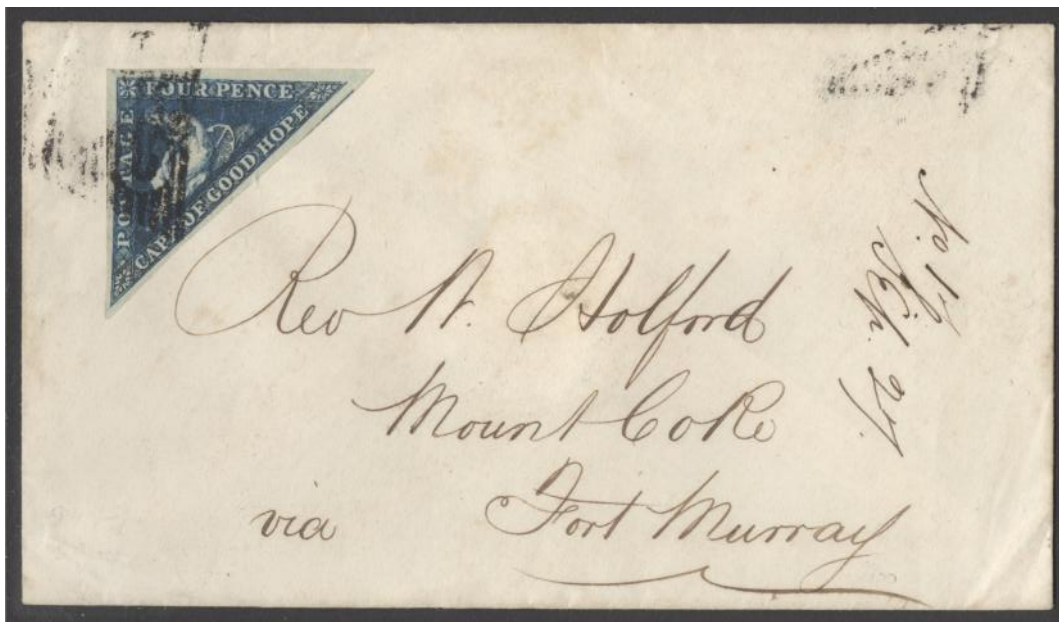 FOUR PENCE
POSTAGE
CAPE OF GOOD HOPE
Rev W. Holford
Mount Coke
via Fort Murray